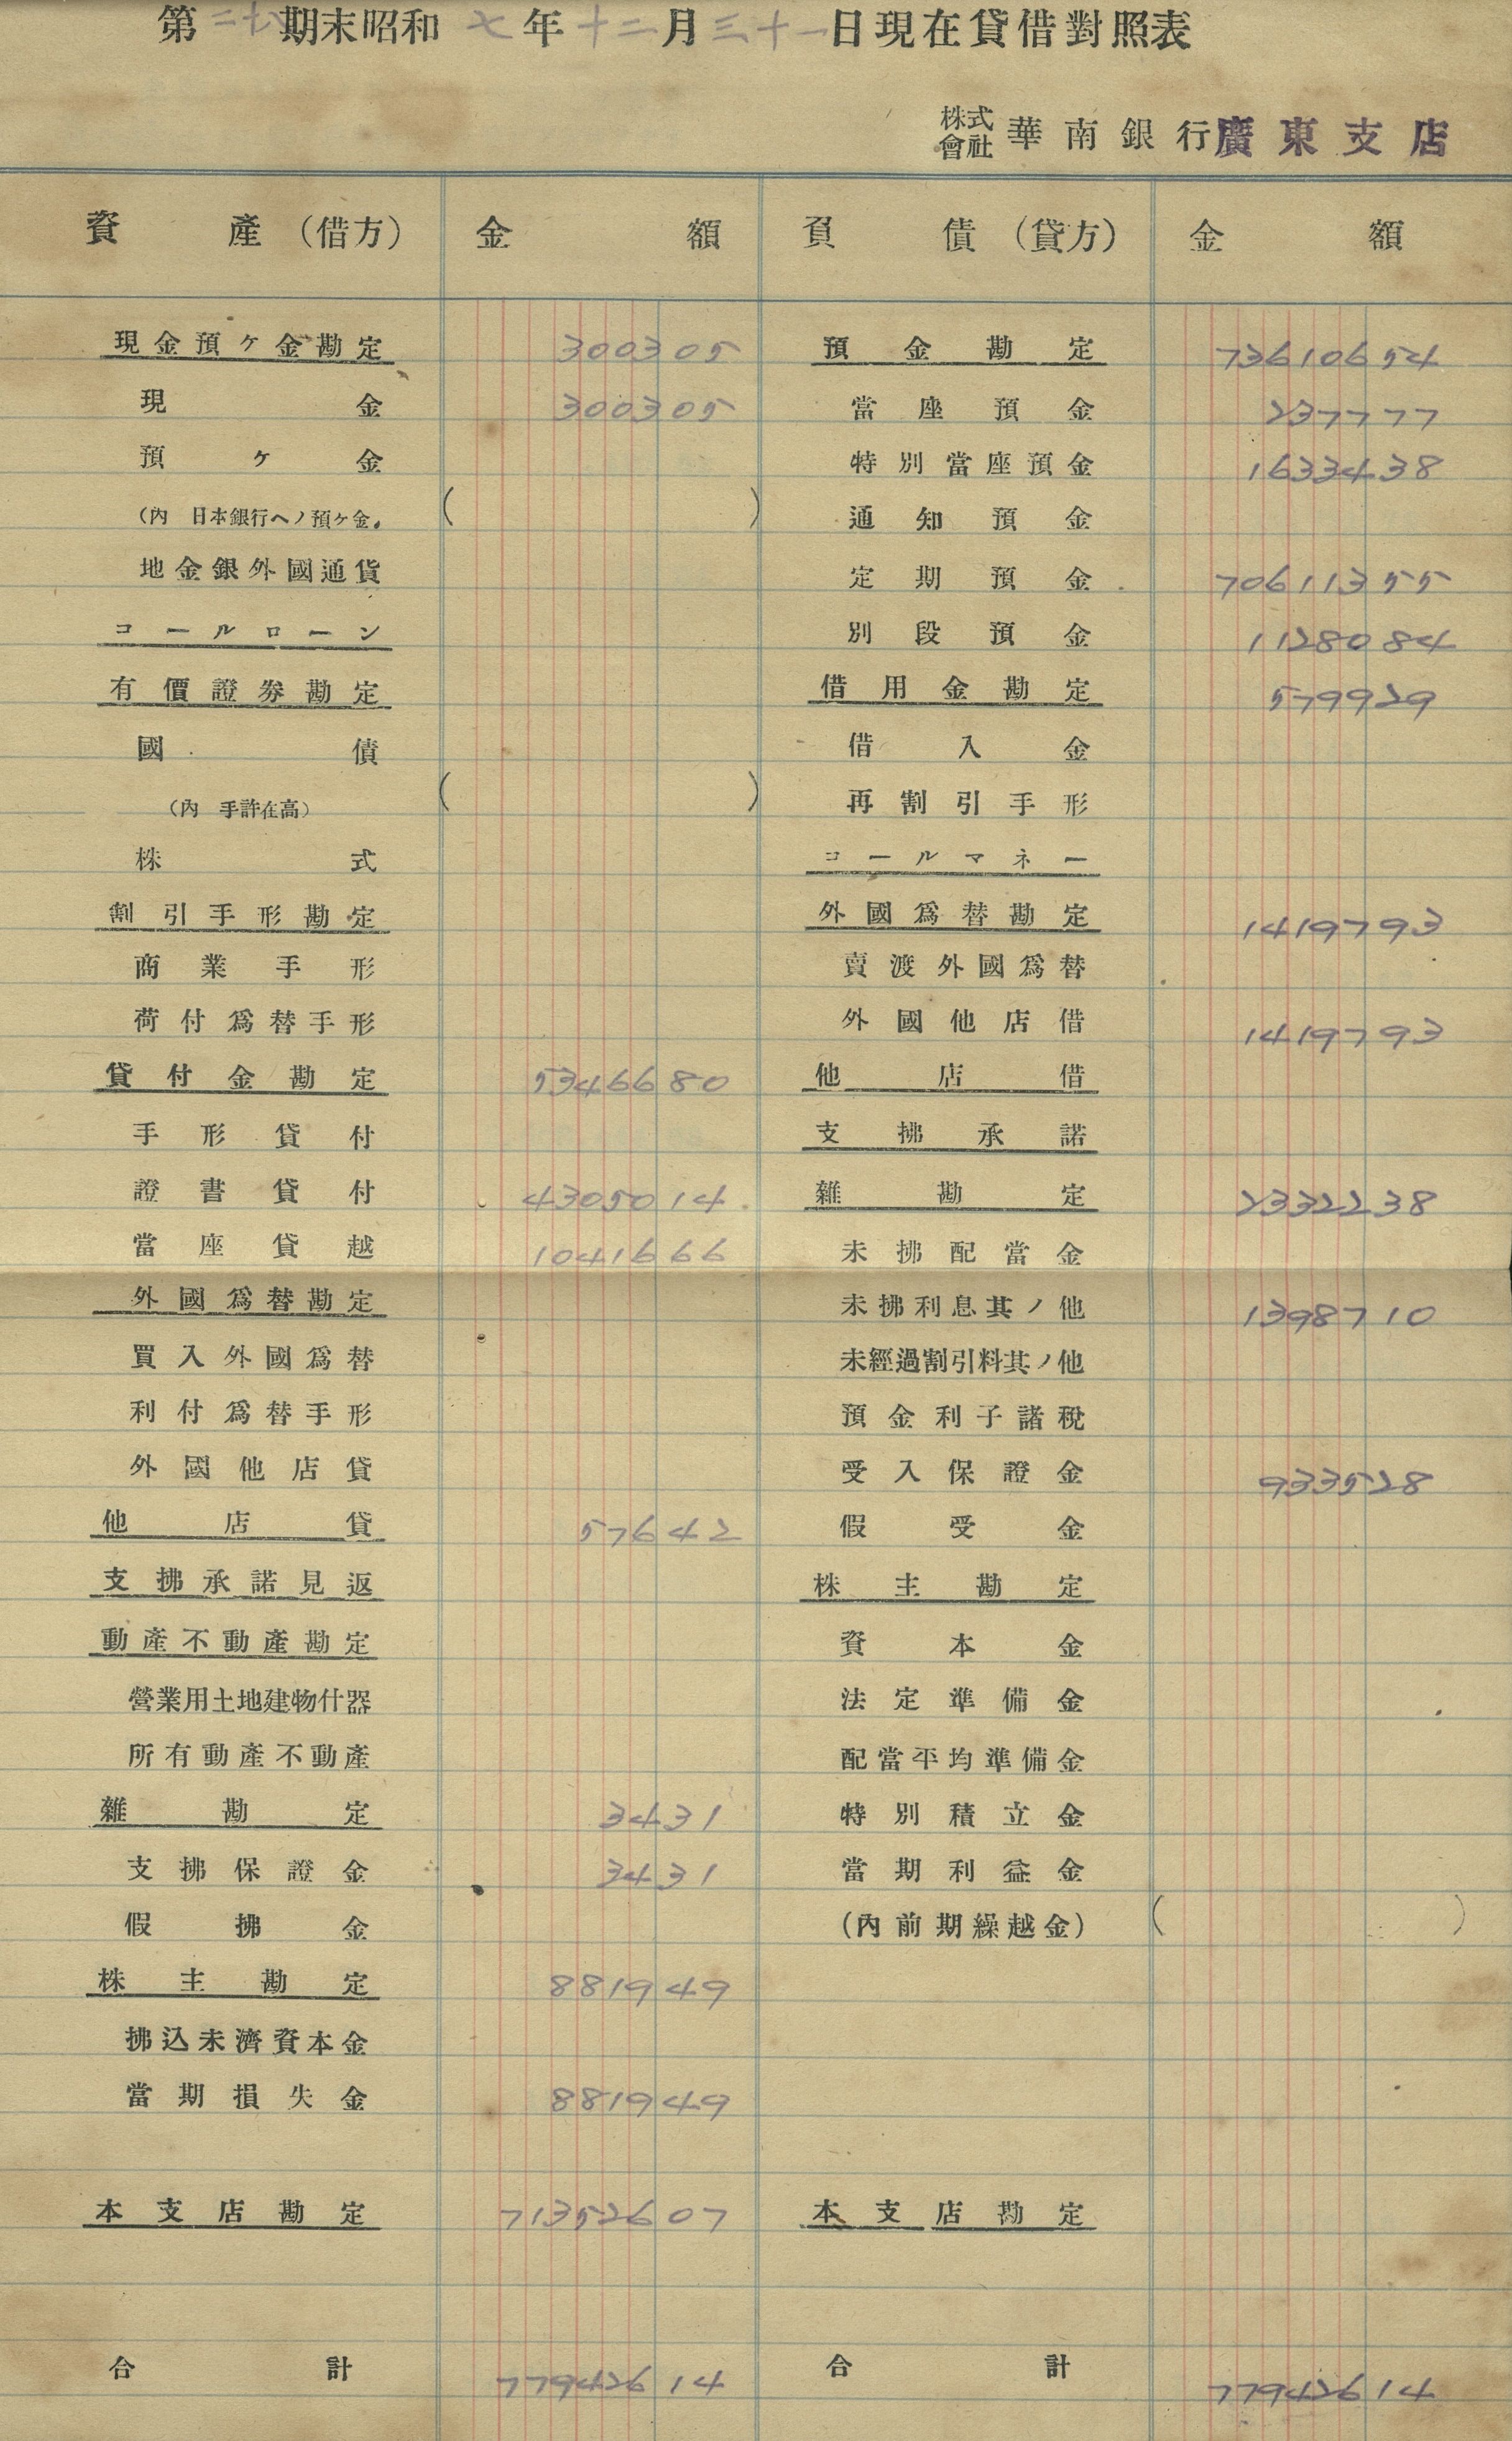 第二十八期末昭和七年十二月三十一日現在貸借對照表
株式會社華南銀行廣東支店
資產(借方) 金額 負債(貸方) 金額
現金預ケ金勘定 300305
現金 300305
預ケ金
(內 日本銀行ヘノ預ケ金) ( )
地金銀外國通貨
コールローン
有價證券勘定
國債
(內 手許在高) ( )
株式
割引手形勘定
商業手形
荷付爲替手形
貸付金勘定 5346680
手形貸付
證書貸付 4305014
當座貸越 1041666
外國爲替勘定
買入外國爲替
利付爲替手形
外國他店貸
他店貸 57642
支拂承諾見返
動產不動產勘定
營業用土地建物什器
所有動產不動產
雜勘定 3431
支拂保證金 3431
假拂金
株主勘定 881949
拂込未濟資本金
當期損失金 881949
本支店勘定 71352607
合計 77942614
預金勘定 73610654
當座預金 237777
特別當座預金 1633438
通知預金
定期預金 70611355
別段預金 1128084
借用金勘定 579929
借入金
再割引手形
コールマネー
外國爲替勘定 1419793
賣渡外國爲替
外國他店借 1419793
他店借
支拂承諾
雜勘定 2332238
未拂配當金
未拂利息其ノ他 1398710
未經過割引料其ノ他
預金利子諸稅
受入保證金 933528
假受金
株主勘定
資本金
法定準備金
配當平均準備金
特別積立金
當期利益金
(內前期繰越金) ( )
本支店勘定
合計 77942614